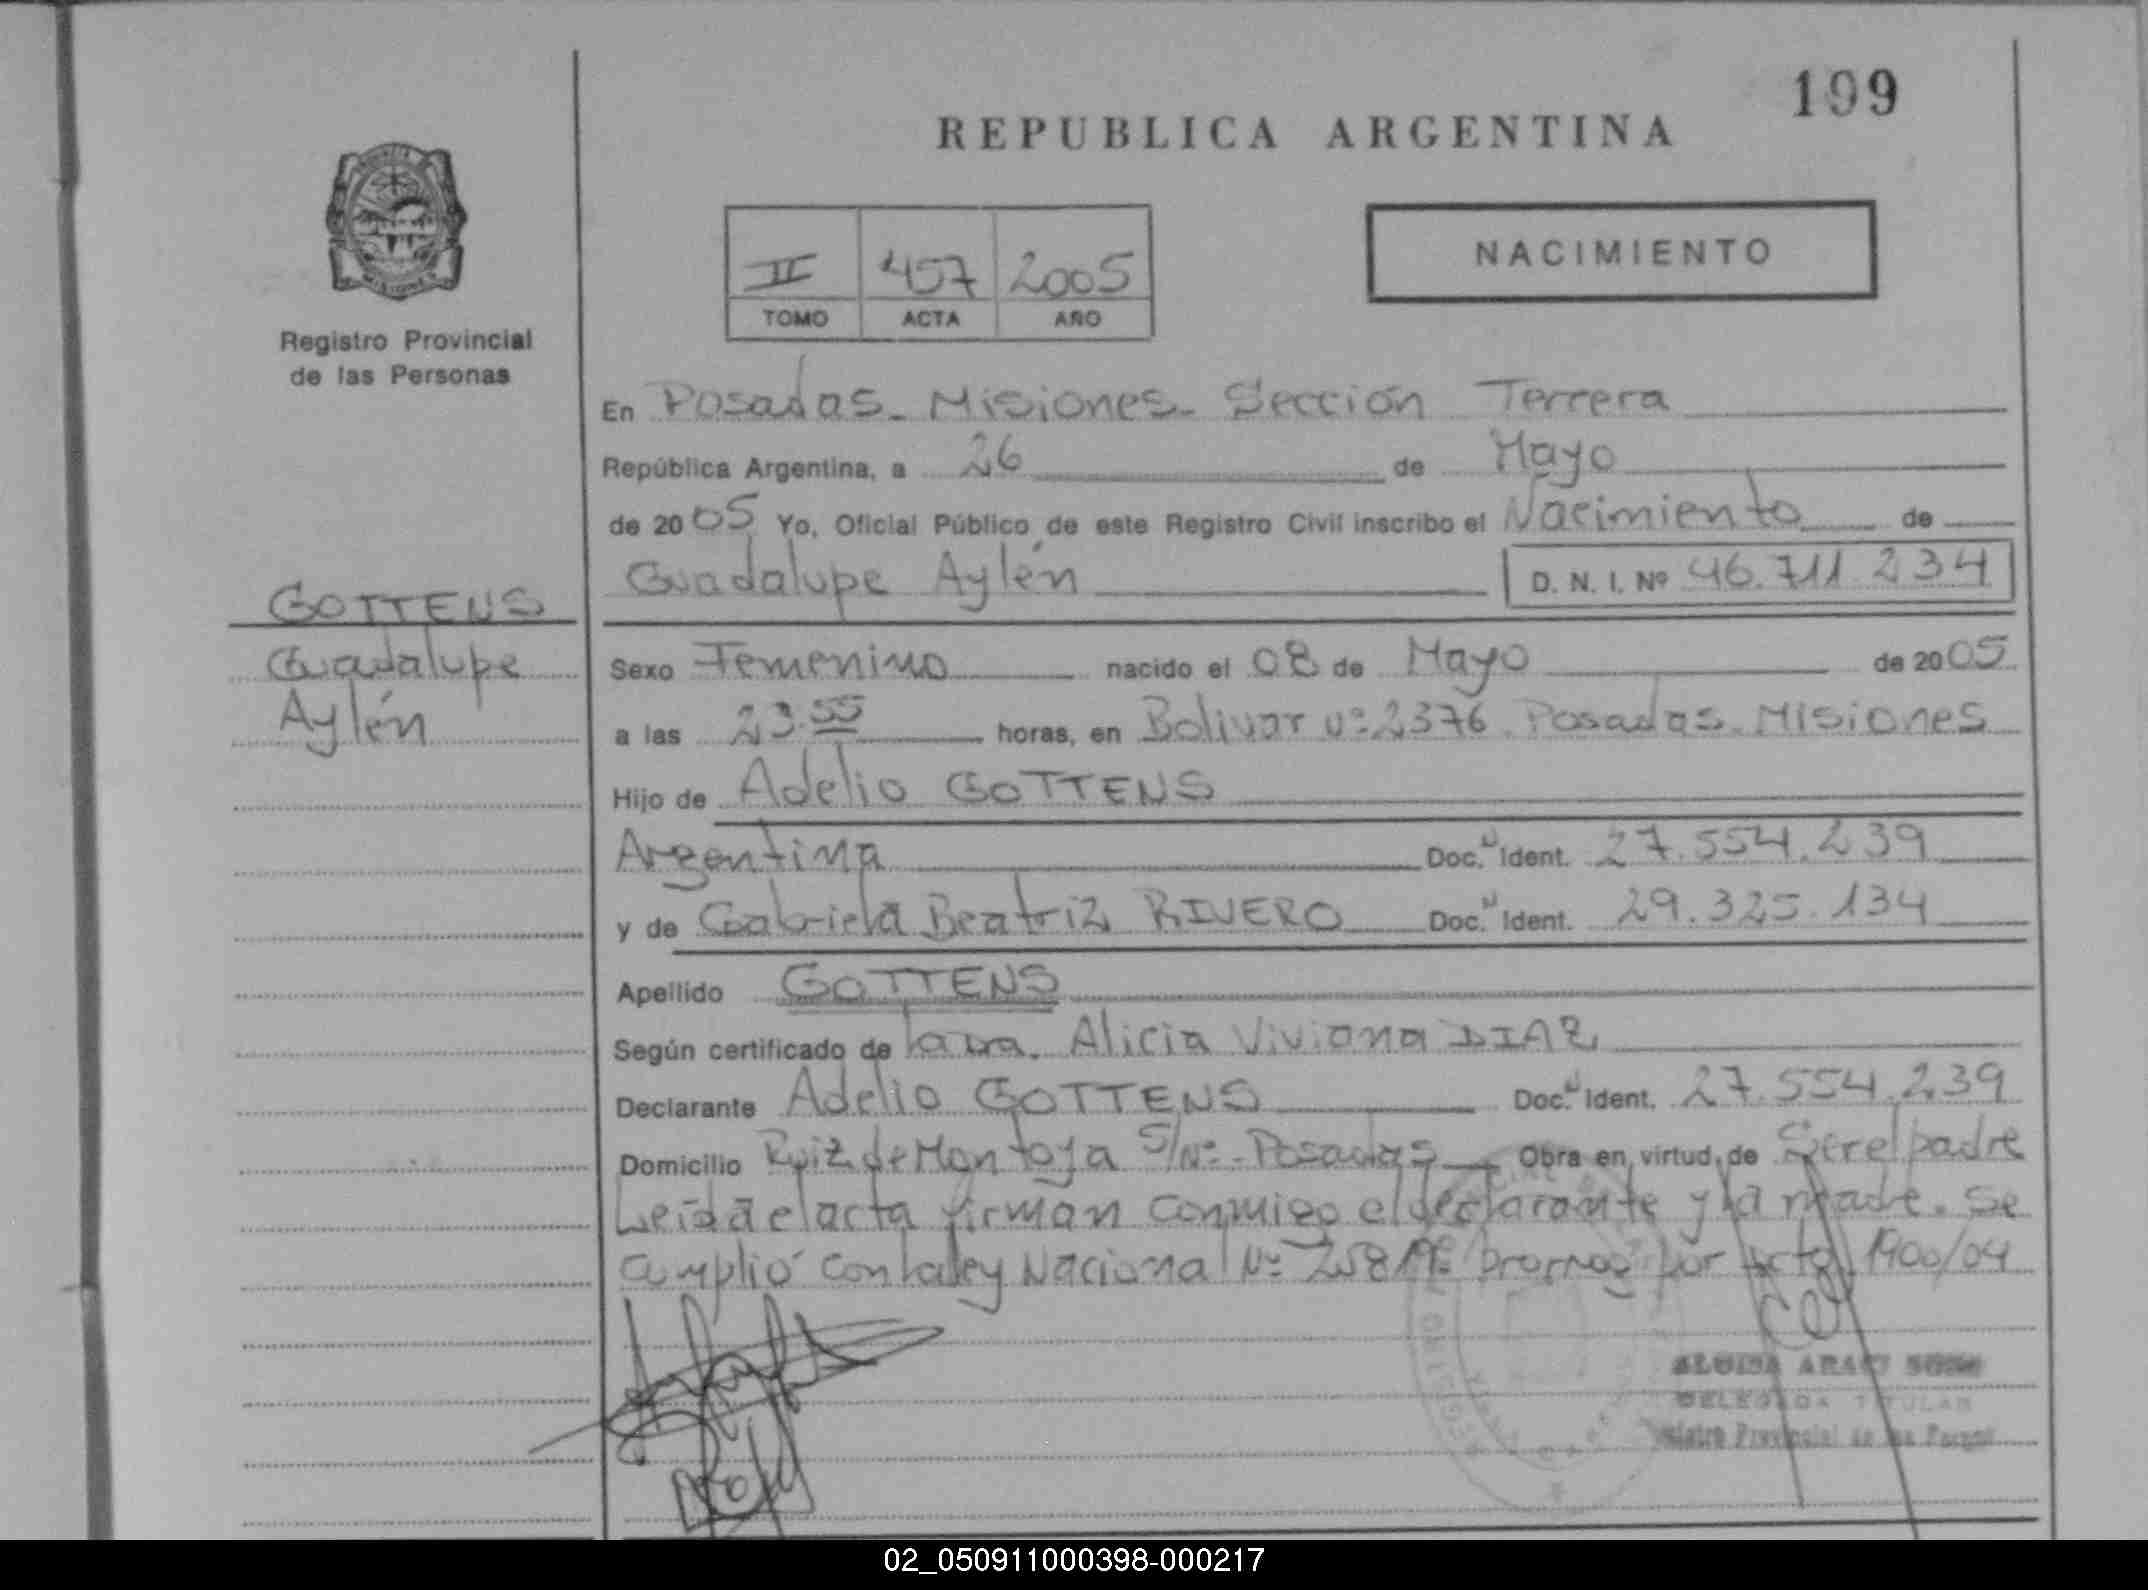 199
REPUBLICA ARGENTINA
NACIMIENTO
II 457 2005
TOMO ACTA AÑO
Registro Provincial
de las Personas
En Posadas - Misiones - Sección Tercera
República Argentina, a 26 de Mayo
de 2005 Yo, Oficial Público de este Registro Civil inscribo el Nacimiento de
Guadalupe Aylén D. N. I. Nº 46.711.234
GOTTENS
Guadalupe
Aylén
Sexo Femenino nacido el 08 de Mayo de 2005
a las 23.55 horas, en Bolivar Nº 2376. Posadas - Misiones
Hijo de Adelio GOTTENS
Argentina Doc. Ident. 27.554.239
y de Gabriela Beatriz RIVERO Doc. Ident. 29.325.134
Apellido GOTTENS
Según certificado de la Dra. Alicia Viviana DIAZ
Declarante Adelio GOTTENS Doc. Ident. 27.554.239
Domicilio Ruiz de Montoya S/Nº - Posadas Obra en virtud de Ser el padre
Leída el acta firman conmigo el declarante y la madre. Se
cumplió con la ley Nacional Nº 25819 prorrog por 1900/04
DELEGADA TITULAR
02_050911000398-000217